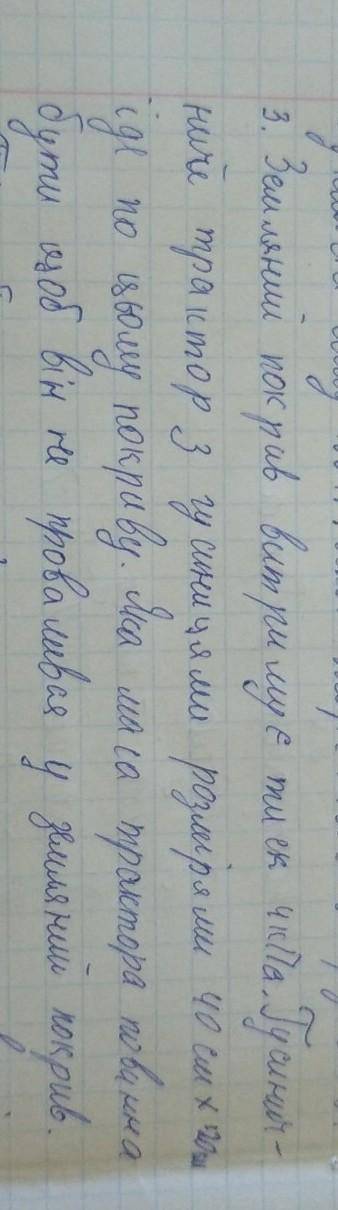 3. Земляний покрив витримує тиск 4кПа. Гусинич-
ниче трактор з гусиницями розмірями 40 см х
іде по цьому покриву. Яка маса трактора повинна
бути щоб він не провалився у земляний покрив.